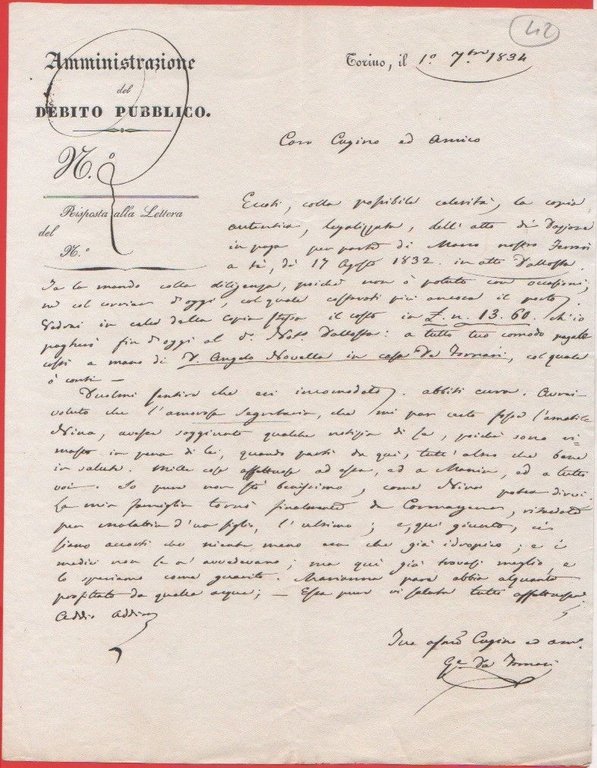 42
Amministrazione
del
DEBITO PUBBLICO.
Torino, il 1º 7bre 1834
N.º
Risposta alla Lettera
del
N.º
Caro Cugino ed Amico
Eccoti, colla possibile celerità, la copia
autentica, legalizzata, dell'atto di
in paga per parte di Marco nostro
a te, dì 17 Agosto 1832. in atti Dallosta.
Te la mando colla diligenza, poichè non ò potuto con occasioni,
nè col corriere d'oggi col quale costerati più ancora il porto.
Vedrai in calce della copia stessa il costo in £. n. 13.60. ch'io
pagherò fin d'oggi al Not. Dallosta: a tutto tuo comodo
a mano di D. Angelo Novella in casa De Fornari, col quale
ò conti —
Duolmi sentire che sei incomodato. abbiti cura. Avrei
voluto che l'amorosa Segretaria, che mi par certo fosse l'amabile
Nina, avesse soggiunto qualche notizia di la, poichè sono
in pena di le, quando partì da qui, tutt'altro che bene
in salute. Mille cose affettuose ad essa, ed a Maria, ed a tutti
voi. Io pure non stò benissimo, come Nina potrà dirvi.
La mia famiglia tornò finalmente da
per malattia d'un figlio, l'ultimo; e, qui giunto, ci
siamo accorti che niente meno era che già idropico; e i
medici non se n'avvedevano; ma qui già trovasi meglio, e
lo speriamo come guarito. Marianna pare abbia alquanto
profittato da quelle acque; — Essa pur vi saluta tutti affettuosa
Addio Addio
Tuo Cugino ed am.